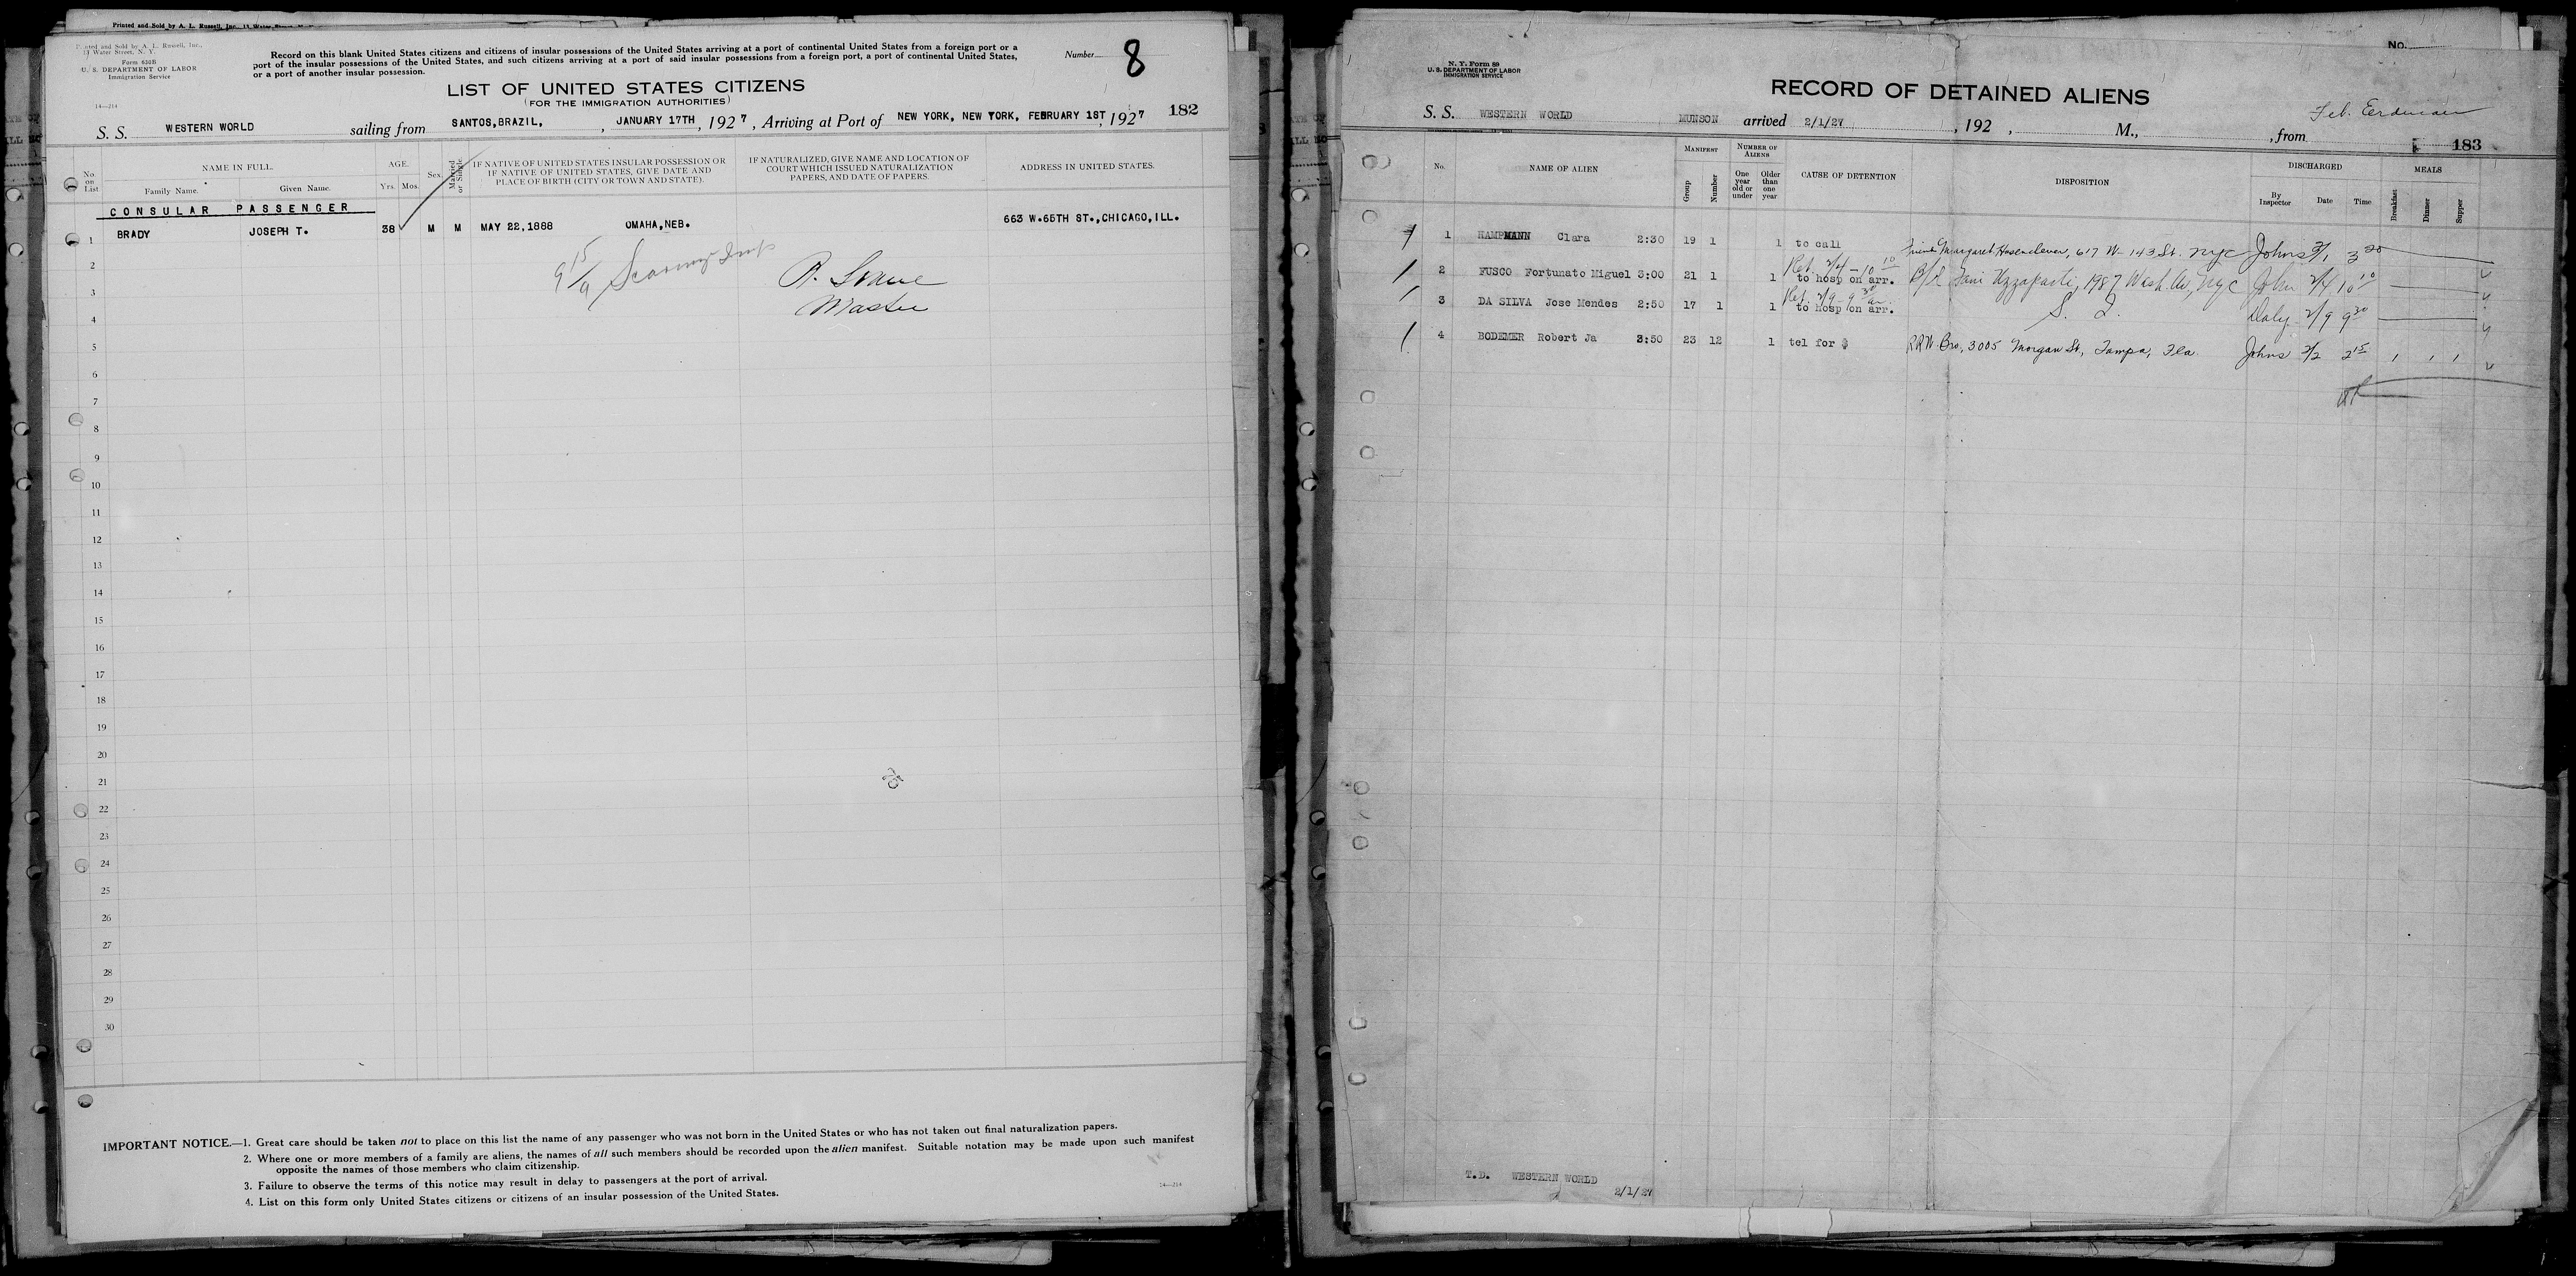 Printed and Sold by A. L. Russell, Inc.,
Printed and Sold by A. L. Russell, Inc.,
Water Street, N. Y.
Form 630B
U. S. DEPARTMENT OF LABOR
Immigration Service
14—214
Record on this blank United States citizens and citizens of insular possessions of the United States arriving at a port of continental United States from a foreign port or a
port of the insular possessions of the United States, and such citizens arriving at a port of said insular possessions from a foreign port, a port of continental United States,
or a port of another insular possession.
Number 8
LIST OF UNITED STATES CITIZENS
(FOR THE IMMIGRATION AUTHORITIES)
182
S. S. WESTERN WORLD sailing from SANTOS, BRAZIL, , JANUARY 17TH, 1927, Arriving at Port of NEW YORK, NEW YORK, FEBRUARY 1ST, 1927
No. on List
NAME IN FULL.
Family Name. Given Name.
AGE.
Yrs. Mos.
Sex.
Married or Single
IF NATIVE OF UNITED STATES INSULAR POSSESSION OR
IF NATIVE OF UNITED STATES, GIVE DATE AND
PLACE OF BIRTH (CITY OR TOWN AND STATE).
IF NATURALIZED, GIVE NAME AND LOCATION OF
COURT WHICH ISSUED NATURALIZATION
PAPERS, AND DATE OF PAPERS.
ADDRESS IN UNITED STATES.
CONSULAR PASSENGER
1 BRADY JOSEPH T. 38 M M MAY 22,1888 OMAHA, NEB. 663 W.65TH ST.,CHICAGO,ILL.
2
3
Master
4
5
6
7
8
9
10
11
12
13
14
15
16
17
18
19
20
21
22
23
24
25
26
27
28
29
30
IMPORTANT NOTICE.—1. Great care should be taken not to place on this list the name of any passenger who was not born in the United States or who has not taken out final naturalization papers.
2. Where one or more members of a family are aliens, the names of all such members should be recorded upon the alien manifest. Suitable notation may be made upon such manifest
opposite the names of those members who claim citizenship.
3. Failure to observe the terms of this notice may result in delay to passengers at the port of arrival.
4. List on this form only United States citizens or citizens of an insular possession of the United States.
14—214
No.
N. Y. Form 89
U. S. DEPARTMENT OF LABOR
IMMIGRATION SERVICE
RECORD OF DETAINED ALIENS
Feb. Erdman
S. S. WESTERN WORLD MUNSON arrived 2/1/27 , 192 , M., , from
183
No.
NAME OF ALIEN
MANIFEST
Group Number
NUMBER OF ALIENS
One year old or under
Older than one year
CAUSE OF DETENTION
DISPOSITION
DISCHARGED
By Inspector Date Time
MEALS
Breakfast Dinner Supper
1 HAMPMANN Clara 2:30 19 1 1 to call friend Margaret Hasenclever, 617 W. 143 St. NYC Johns 2/1 3 20
Ret. 2/4 - 10 10
2 FUSCO Fortunato Miguel 3:00 21 1 1 to hosp on arr. 1987 Wash. Av, NYC John 2/4 10 10
Ret. 2/9 - 9 30 am.
3 DA SILVA Jose Mendes 2:50 17 1 1 to hosp on arr. S. I. Daly 2/9 9 30
4 BODEMER Robert Ja 3:50 23 12 1 tel for $ RRW Bro, 3005 Morgan St, Tampa, Fla. Johns 2/2 2 15 1 1 1
T.D. WESTERN WORLD
2/1/27